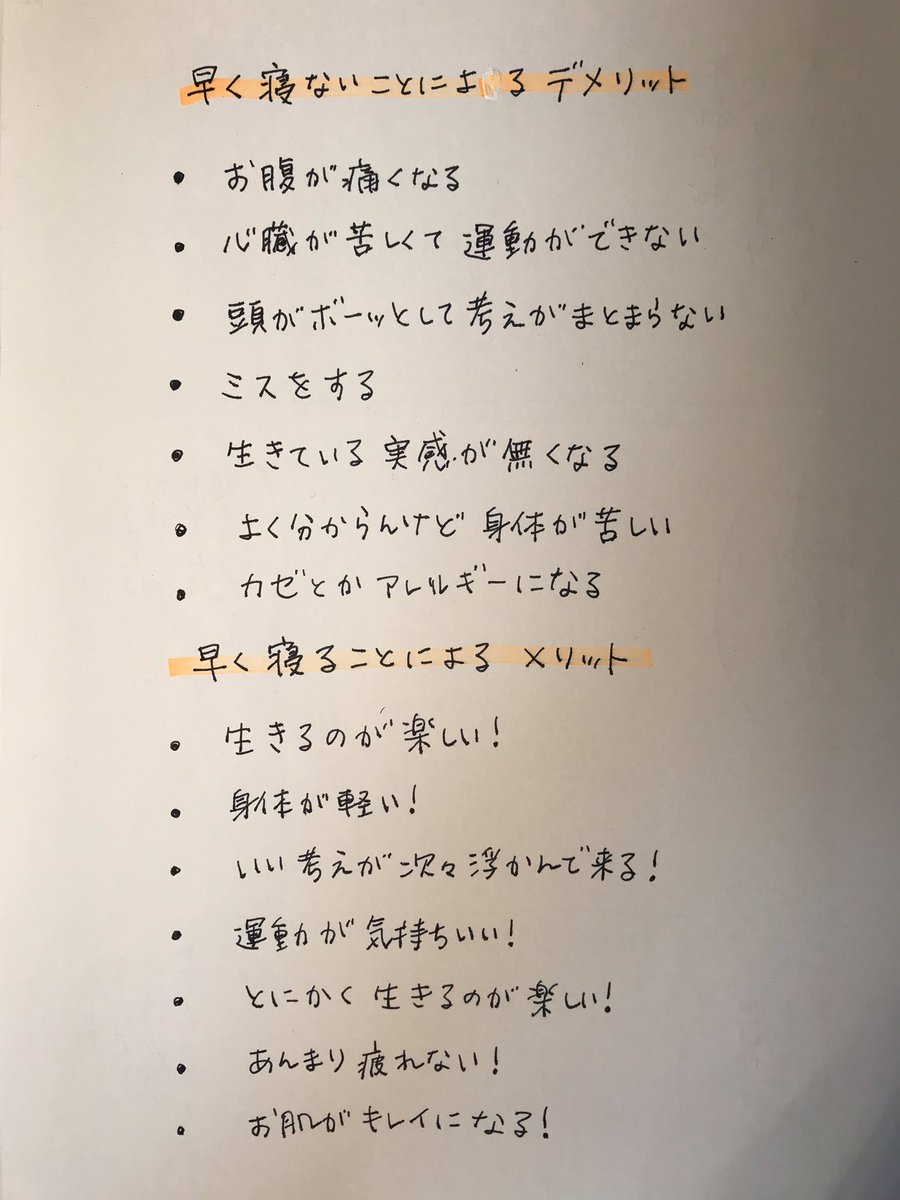 早く寝ないことによる デメリット
• お腹が痛くなる
• 心臓が苦しくて 運動ができない
• 頭がボーッとして考えがまとまらない
• ミスをする
• 生きている 実感が無くなる
• よく分からんけど 身体が苦しい
• カゼとか アレルギーになる
早く寝ることによる メリット
• 生きるのが楽しい!
• 身体が軽い!
• いい考えが次々浮かんで来る!
• 運動が気持ちいい!
• とにかく 生きるのが楽しい!
• あんまり疲れない!
• お肌がキレイになる!